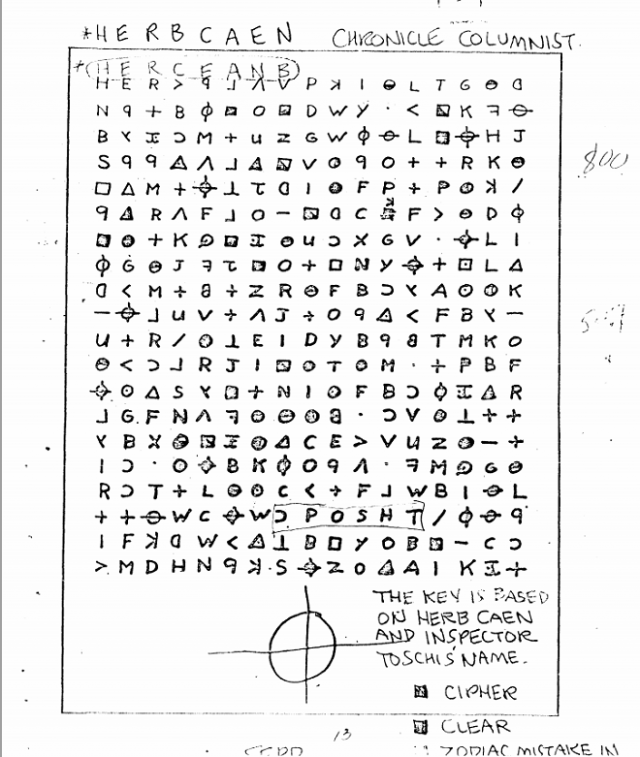 *HERB CAEN CHRONICLE COLUMNIST.
*(HERCEANB)
H E R > ꟼ ⅃ Λ V P ꓘ I ⊖ L T G ⊖ ᗡ
N 9 + B ϕ ◪ O ◪ D W Y · < ◪ K ꟻ ⦵
B Y I Ɔ M + U Z G W ϕ ⦵ L ◪ ⌖ H J
S 9 9 Δ Λ ⅃ ◭ ◪ V ⊖ 9 O + + R K ⊖
□ Δ M + ⌖ ⊥ τ ᗡ I ⊖ F P + P ⊙ ꓘ /
9 ◭ R Λ F ⅃ O – ◪ ᗡ C ꓘ F > ⊖ D ϕ
◪ ⊖ + K ⊙ ◪ I ⊖ U Ɔ X G V · ⌖ L I
ϕ G ⊖ J ꟻ τ ◪ O + □ N Y ⌖ + ◪ L Δ
ᗡ < M + B + Z R ⊖ F B Ɔ Y A ⊙ ⊙ K
– ⌖ ⅃ U V + Λ J + O 9 ◭ < F B Y –
U + R / ⊙ ⊥ E I D Y B 9 8 T M K O
⊖ < Ɔ ⅃ R J I ◪ ⊙ T ⊙ M · + P B F
⌖ ⊙ Δ S Y ◪ + N I ⊖ F B Ɔ ϕ I ◭ R
⅃ G F N Λ ꟻ ⊖ ⊖ ⊖ ⊙ 8 · Ɔ V ⊖ ⊥ + +
Y B X ⊖ ◪ I ⊖ Δ C E > V U Z ⊖ – +
I Ɔ · O ⌖ B K ϕ O 9 Λ · ꟻ M ⊙ G ⊖
R Ɔ T + L ⊖ ⊙ C < + F ⅃ W B I ⦵ L
+ + ⦵ W C ⌖ W Ɔ P O S H T / ϕ ⦵ 9
I F ꓘ ᗡ W < ◭ ⊥ B □ Y O B ◪ – C Ɔ
> M D H N 9 ꓘ S ⌖ Z O ◭ A I K I +
800
THE KEY IS BASED
ON HERB CAEN
AND INSPECTOR
TOSCHIS' NAME.
CIPHER
CLEAR
13
ZODIAC MISTAKE IN